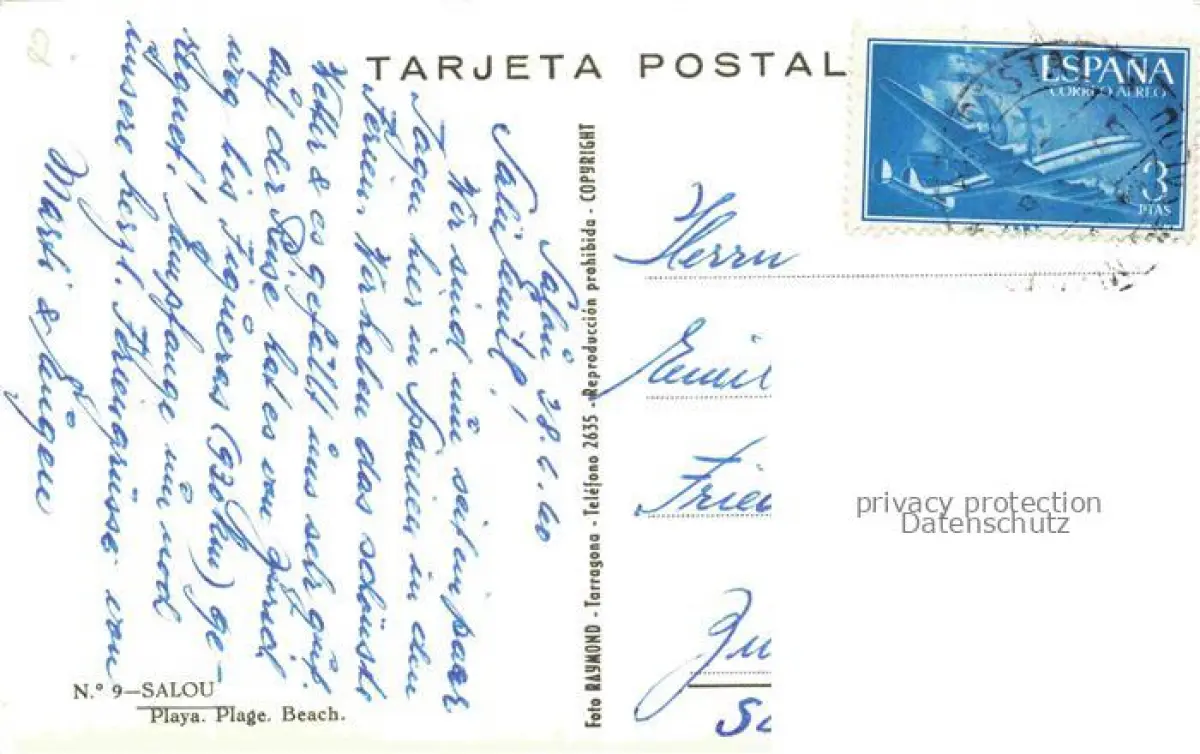 TARJETA POSTAL
ESPAÑA
CORREO AEREO
3
PTAS
Salou 28.6.60
Salü Emil!
Wir sind nun seit ein paar
Tagen hier in Spanien in den
Ferien. Wir haben das schönste
Wetter & es gefällt uns sehr gut.
Auf der Reise hat es von Zürich
weg bis Figueras (930km) ge-
regnet!! Empfange nun noch
unsere herzl. Feriengrüsse von
Marti & Jürgen
Foto RAYMOND - Tarragona - Teléfono 2635 - Reproducción prohibida - COPYRIGHT
Herrn
Emil
Frie
Zu
N.º 9—SALOU
Playa. Plage. Beach.
privacy protection
Datenschutz